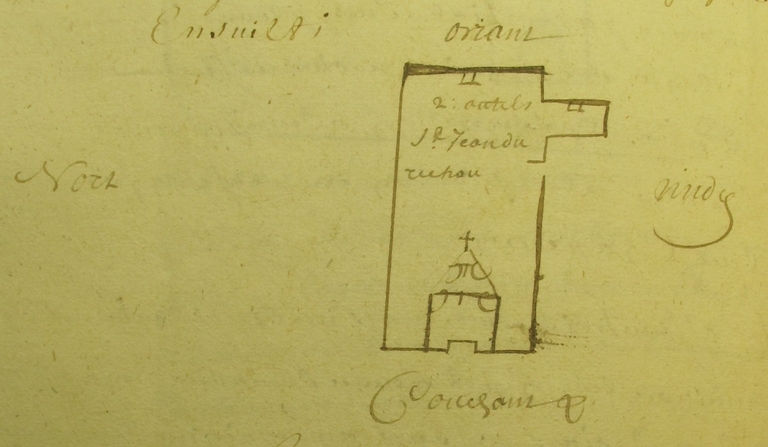 oriant
2: autels
St Jean du
Nort
midy
Couchant